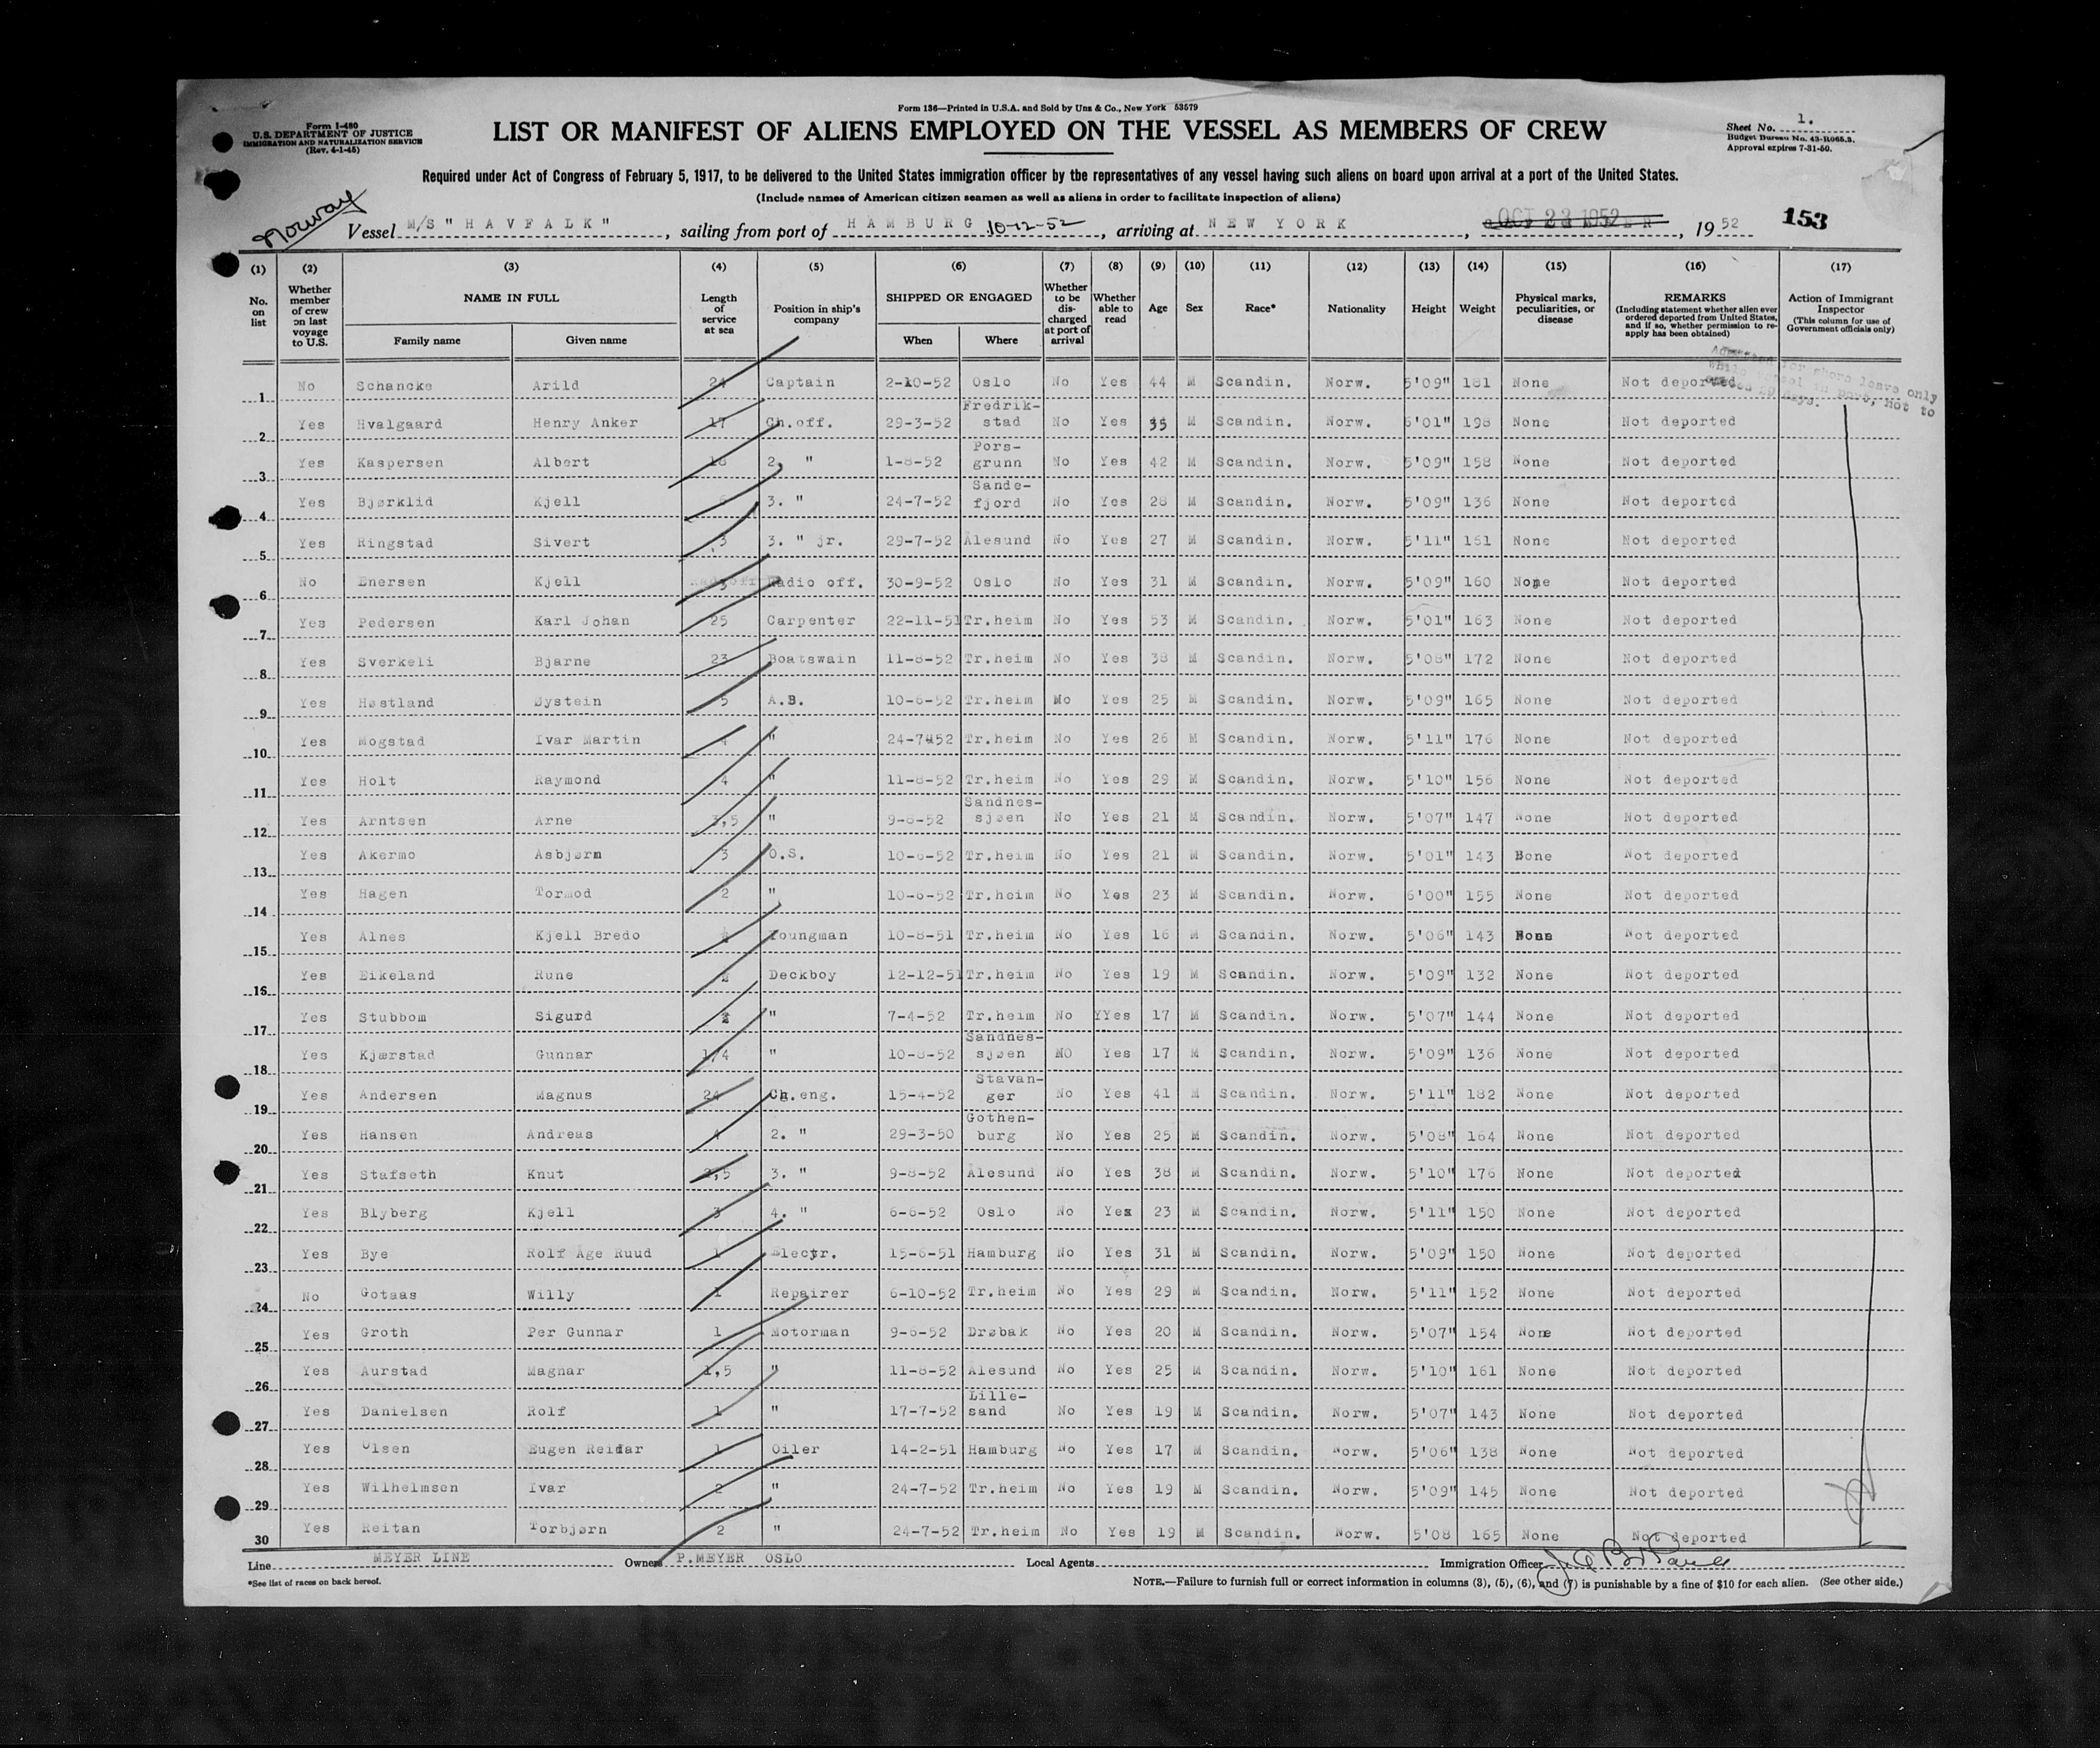 Form 136—Printed in U.S.A. and Sold by Unz & Co., New York 53579
Form I-480
U.S. DEPARTMENT OF JUSTICE
IMMIGRATION AND NATURALIZATION SERVICE
(Rev. 4-1-45)
LIST OR MANIFEST OF ALIENS EMPLOYED ON THE VESSEL AS MEMBERS OF CREW
Sheet No. 1.
Budget Bureau No. 43-R065.3.
Approval expires 7-31-50.
Required under Act of Congress of February 5, 1917, to be delivered to the United States immigration officer by the representatives of any vessel having such aliens on board upon arrival at a port of the United States.
(Include names of American citizen seamen as well as aliens in order to facilitate inspection of aliens)
Norway
Vessel M/S "HAVFALK", sailing from port of HAMBURG 10-12-52, arriving at NEW YORK, OCT 23 1952, 1952 153
(1) (2) (3) (4) (5) (6) (7) (8) (9) (10) (11) (12) (13) (14) (15) (16) (17)
No. on list Whether member of crew on last voyage to U.S. NAME IN FULL Family name Given name Length of service at sea Position in ship's company SHIPPED OR ENGAGED When Where Whether to be discharged at port of arrival Whether able to read Age Sex Race* Nationality Height Weight Physical marks, peculiarities, or disease REMARKS (Including statement whether alien ever ordered deported from United States, and if so, whether permission to reapply has been obtained) Action of Immigrant Inspector (This column for use of Government officials only)
Admitted for shore leave only
while vessel in port, not to
exceed 29 days.
1 No Schancke Arild 24 Captain 2-10-52 Oslo No Yes 44 M Scandin. Norw. 5'09" 181 None Not deported
2 Yes Hvalgaard Henry Anker 17 Ch.off. 29-3-52 Fredrik-stad No Yes 35 M Scandin. Norw. 6'01" 198 None Not deported
3 Yes Kaspersen Albert 18 2. " 1-8-52 Pors-grunn No Yes 42 M Scandin. Norw. 5'09" 158 None Not deported
4 Yes Bjørklid Kjell 6 3. " 24-7-52 Sande-fjord No Yes 28 M Scandin. Norw. 5'09" 136 None Not deported
5 Yes Ringstad Sivert 3 3. " jr. 29-7-52 Ålesund No Yes 27 M Scandin. Norw. 5'11" 161 None Not deported
6 No Enersen Kjell 3 Radio off. 30-9-52 Oslo No Yes 31 M Scandin. Norw. 5'09" 160 None Not deported
7 Yes Pedersen Karl Johan 25 Carpenter 22-11-51 Tr.heim No Yes 53 M Scandin. Norw. 5'01" 163 None Not deported
8 Yes Sverkeli Bjarne 23 Boatswain 11-8-52 Tr.heim No Yes 38 M Scandin. Norw. 5'08" 172 None Not deported
9 Yes Høstland Øystein 5 A.B. 10-6-52 Tr.heim No Yes 25 M Scandin. Norw. 5'09" 165 None Not deported
10 Yes Mogstad Ivar Martin " 24-7-52 Tr.heim No Yes 26 M Scandin. Norw. 5'11" 176 None Not deported
11 Yes Holt Raymond 4 " 11-8-52 Tr.heim No Yes 29 M Scandin. Norw. 5'10" 156 None Not deported
12 Yes Arntsen Arne 3,5 " 9-6-52 Sandnes-sjøen No Yes 21 M Scandin. Norw. 5'07" 147 None Not deported
13 Yes Akermo Asbjørn 3 O.S. 10-6-52 Tr.heim No Yes 21 M Scandin. Norw. 5'01" 143 None Not deported
14 Yes Hagen Tormod 2 " 10-6-52 Tr.heim No Yes 23 M Scandin. Norw. 6'00" 155 None Not deported
15 Yes Alnes Kjell Bredo Youngman 10-8-51 Tr.heim No Yes 16 M Scandin. Norw. 5'06" 143 None Not deported
16 Yes Eikeland Rune Deckboy 12-12-51 Tr.heim No Yes 19 M Scandin. Norw. 5'09" 132 None Not deported
17 Yes Stubbom Sigurd " 7-4-52 Tr.heim No YYes 17 M Scandin. Norw. 5'07" 144 None Not deported
18 Yes Kjærstad Gunnar 1/4 " 10-8-52 Sandnes-sjøen NO Yes 17 M Scandin. Norw. 5'09" 136 None Not deported
19 Yes Andersen Magnus 24 Ch.eng. 15-4-52 Stavan-ger No Yes 41 M Scandin. Norw. 5'11" 182 None Not deported
20 Yes Hansen Andreas 4 2. " 29-3-50 Gothen-burg No Yes 25 M Scandin. Norw. 5'08" 164 None Not deported
21 Yes Stafseth Knut 2,5 3. " 9-8-52 Ålesund No Yes 38 M Scandin. Norw. 5'10" 176 None Not deported
22 Yes Blyberg Kjell 3 4. " 6-6-52 Oslo No Yes 23 M Scandin. Norw. 5'11" 150 None Not deported
23 Yes Bye Rolf Åge Ruud 1 Electr. 15-6-51 Hamburg No Yes 31 M Scandin. Norw. 5'09" 150 None Not deported
24 No Gotaas Willy 1 Repairer 6-10-52 Tr.heim No Yes 29 M Scandin. Norw. 5'11" 152 None Not deported
25 Yes Groth Per Gunnar 1 Motorman 9-6-52 Drøbak No Yes 20 M Scandin. Norw. 5'07" 154 None Not deported
26 Yes Aurstad Magnar 1,5 " 11-8-52 Ålesund No Yes 25 M Scandin. Norw. 5'10" 161 None Not deported
27 Yes Danielsen Rolf 1 " 17-7-52 Lille-sand No Yes 19 M Scandin. Norw. 5'07" 143 None Not deported
28 Yes Olsen Eugen Reidar 1 Oiler 14-2-51 Hamburg No Yes 17 M Scandin. Norw. 5'06" 138 None Not deported
29 Yes Wilhelmsen Ivar 2 " 24-7-52 Tr.heim No Yes 19 M Scandin. Norw. 5'09" 145 None Not deported
30 Yes Reitan Torbjørn 2 " 24-7-52 Tr.heim No Yes 19 M Scandin. Norw. 5'08 165 None Not deported
Line MEYER LINE Owners P.MEYER OSLO Local Agents Immigration Officer
*See list of races on back hereof.
NOTE.—Failure to furnish full or correct information in columns (3), (5), (6), and (7) is punishable by a fine of $10 for each alien. (See other side.)